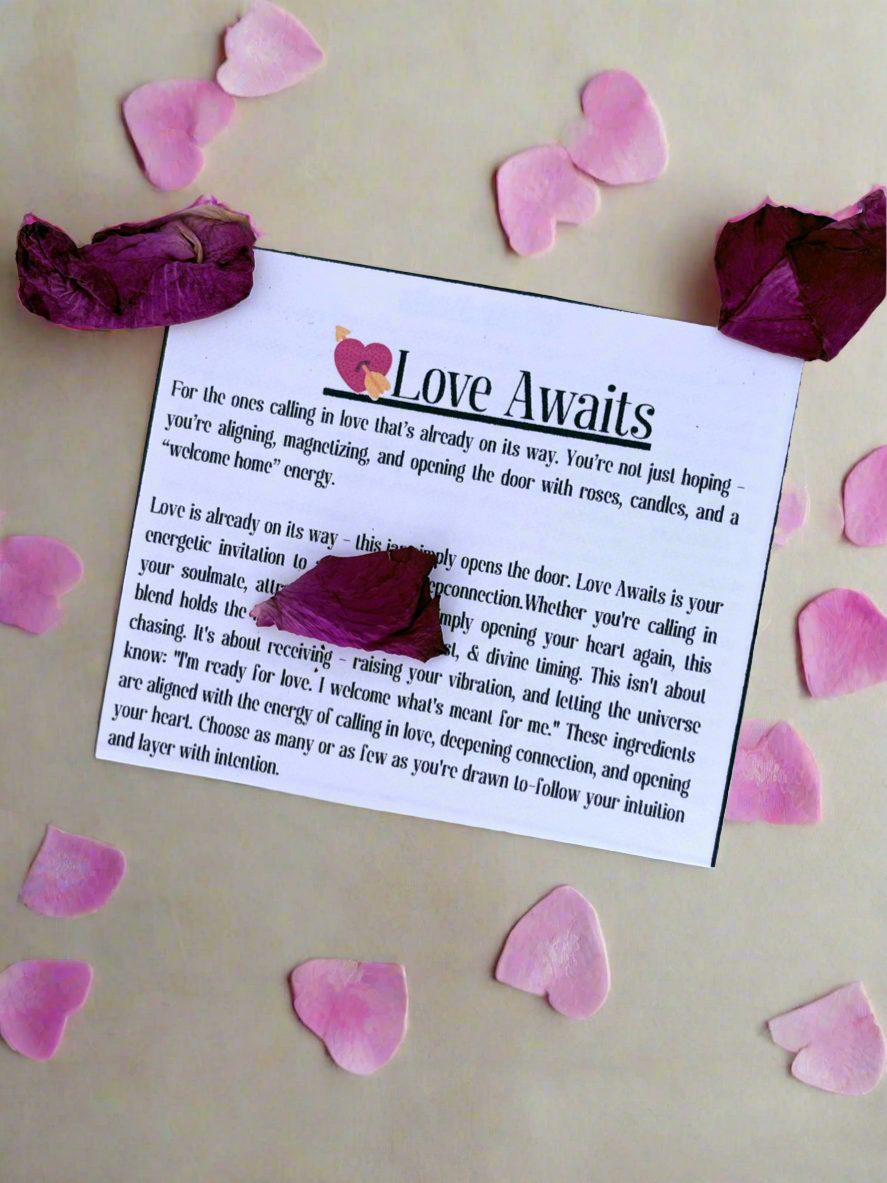 Love Awaits
For the ones calling in love that's already on its way. You're not just hoping –
you're aligning, magnetizing, and opening the door with roses, candles, and a
"welcome home" energy.
Love is already on its way – this opens the door. Love Awaits is your
energetic invitation to Whether you're calling in
your soulmate, opening your heart again, this
blend holds the & divine timing. This isn't about
chasing. It's about receiving – raising your vibration, and letting the universe
know: "I'm ready for love. I welcome what's meant for me." These ingredients
are aligned with the energy of calling in love, deepening connection, and opening
your heart. Choose as many or as few as you're drawn to-follow your intuition
and layer with intention.